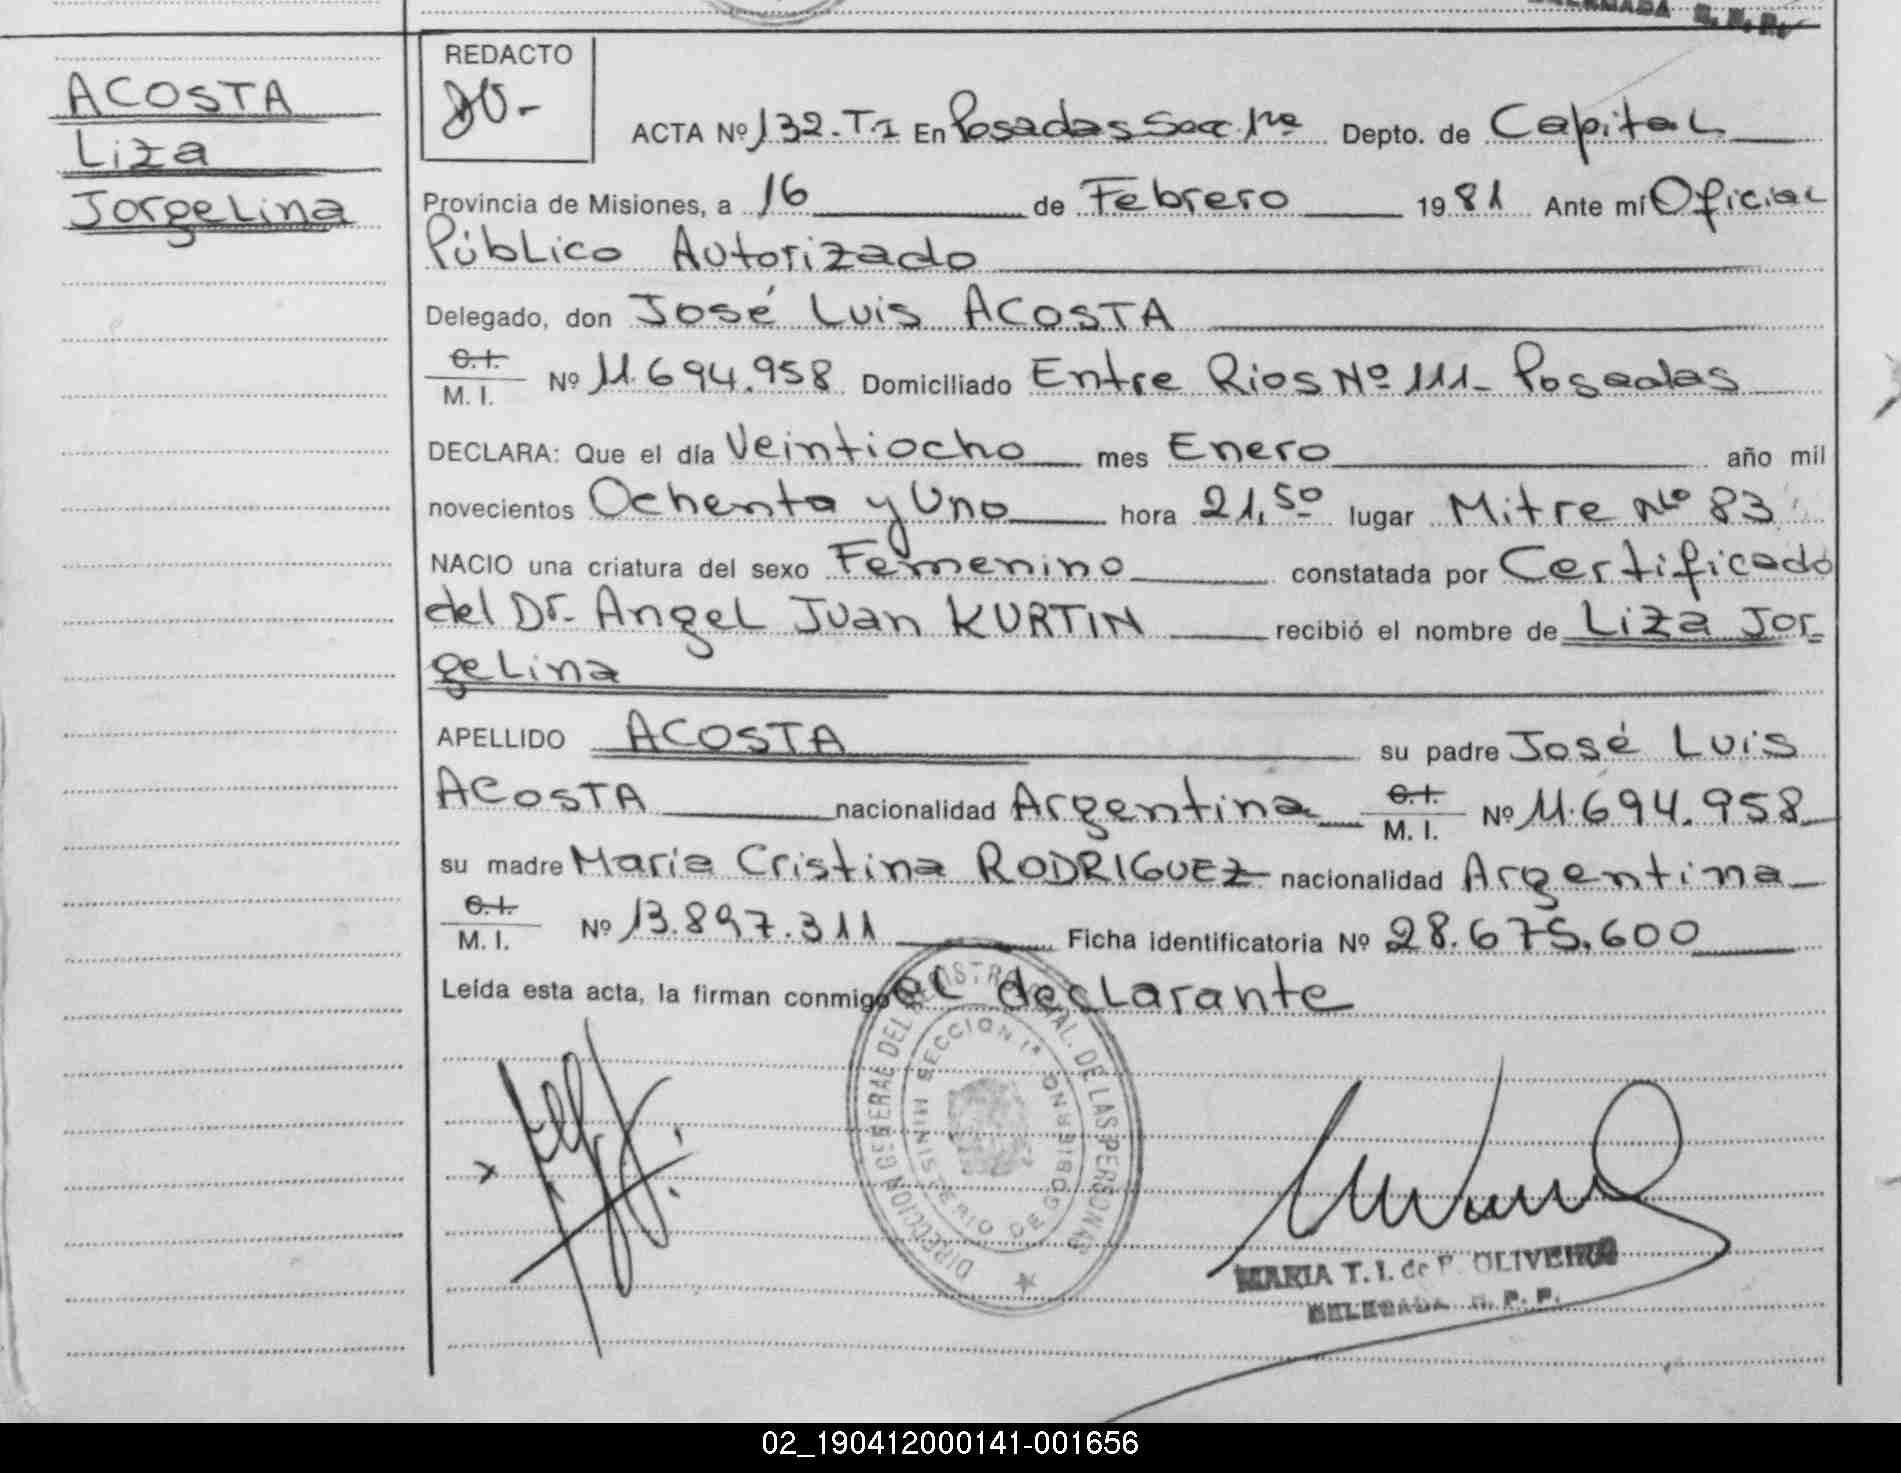 DELEGADA R. P. P.
ACOSTA
Liza
Jorgelina
REDACTO
ACTA Nº 132.T.I En Posadas Secc. 1ra Depto. de Capital
Provincia de Misiones, a 16 de Febrero 1981 Ante mí Oficial
Público Autorizado
Delegado, don José Luis ACOSTA
C.I.
M. I. Nº 11.694.958 Domiciliado Entre Rios Nº 111- Posadas
DECLARA: Que el día Veintiocho mes Enero año mil
novecientos Ochenta y Uno hora 21,50 lugar Mitre Nº 83
NACIO una criatura del sexo Femenino constatada por Certificado
del Dr. Angel Juan KURTIN recibió el nombre de Liza Jor-
gelina
APELLIDO ACOSTA su padre José Luis
ACOSTA nacionalidad Argentina C.I. M. I. Nº 11.694.958
su madre Maria Cristina RODRIGUEZ nacionalidad Argentina
C.I.
M. I. Nº 13.897.311 Ficha identificatoria Nº 28.675.600
Leída esta acta, la firman conmigo el declarante
DIRECCION GENERAL DEL REGISTRO PCIAL. DE LAS PERSONAS
SECCION 1ª
MINISTERIO DE GOBIERNO
MARIA T. I. de P. OLIVEIRO
DELEGADA R. P. P.
02_190412000141-001656